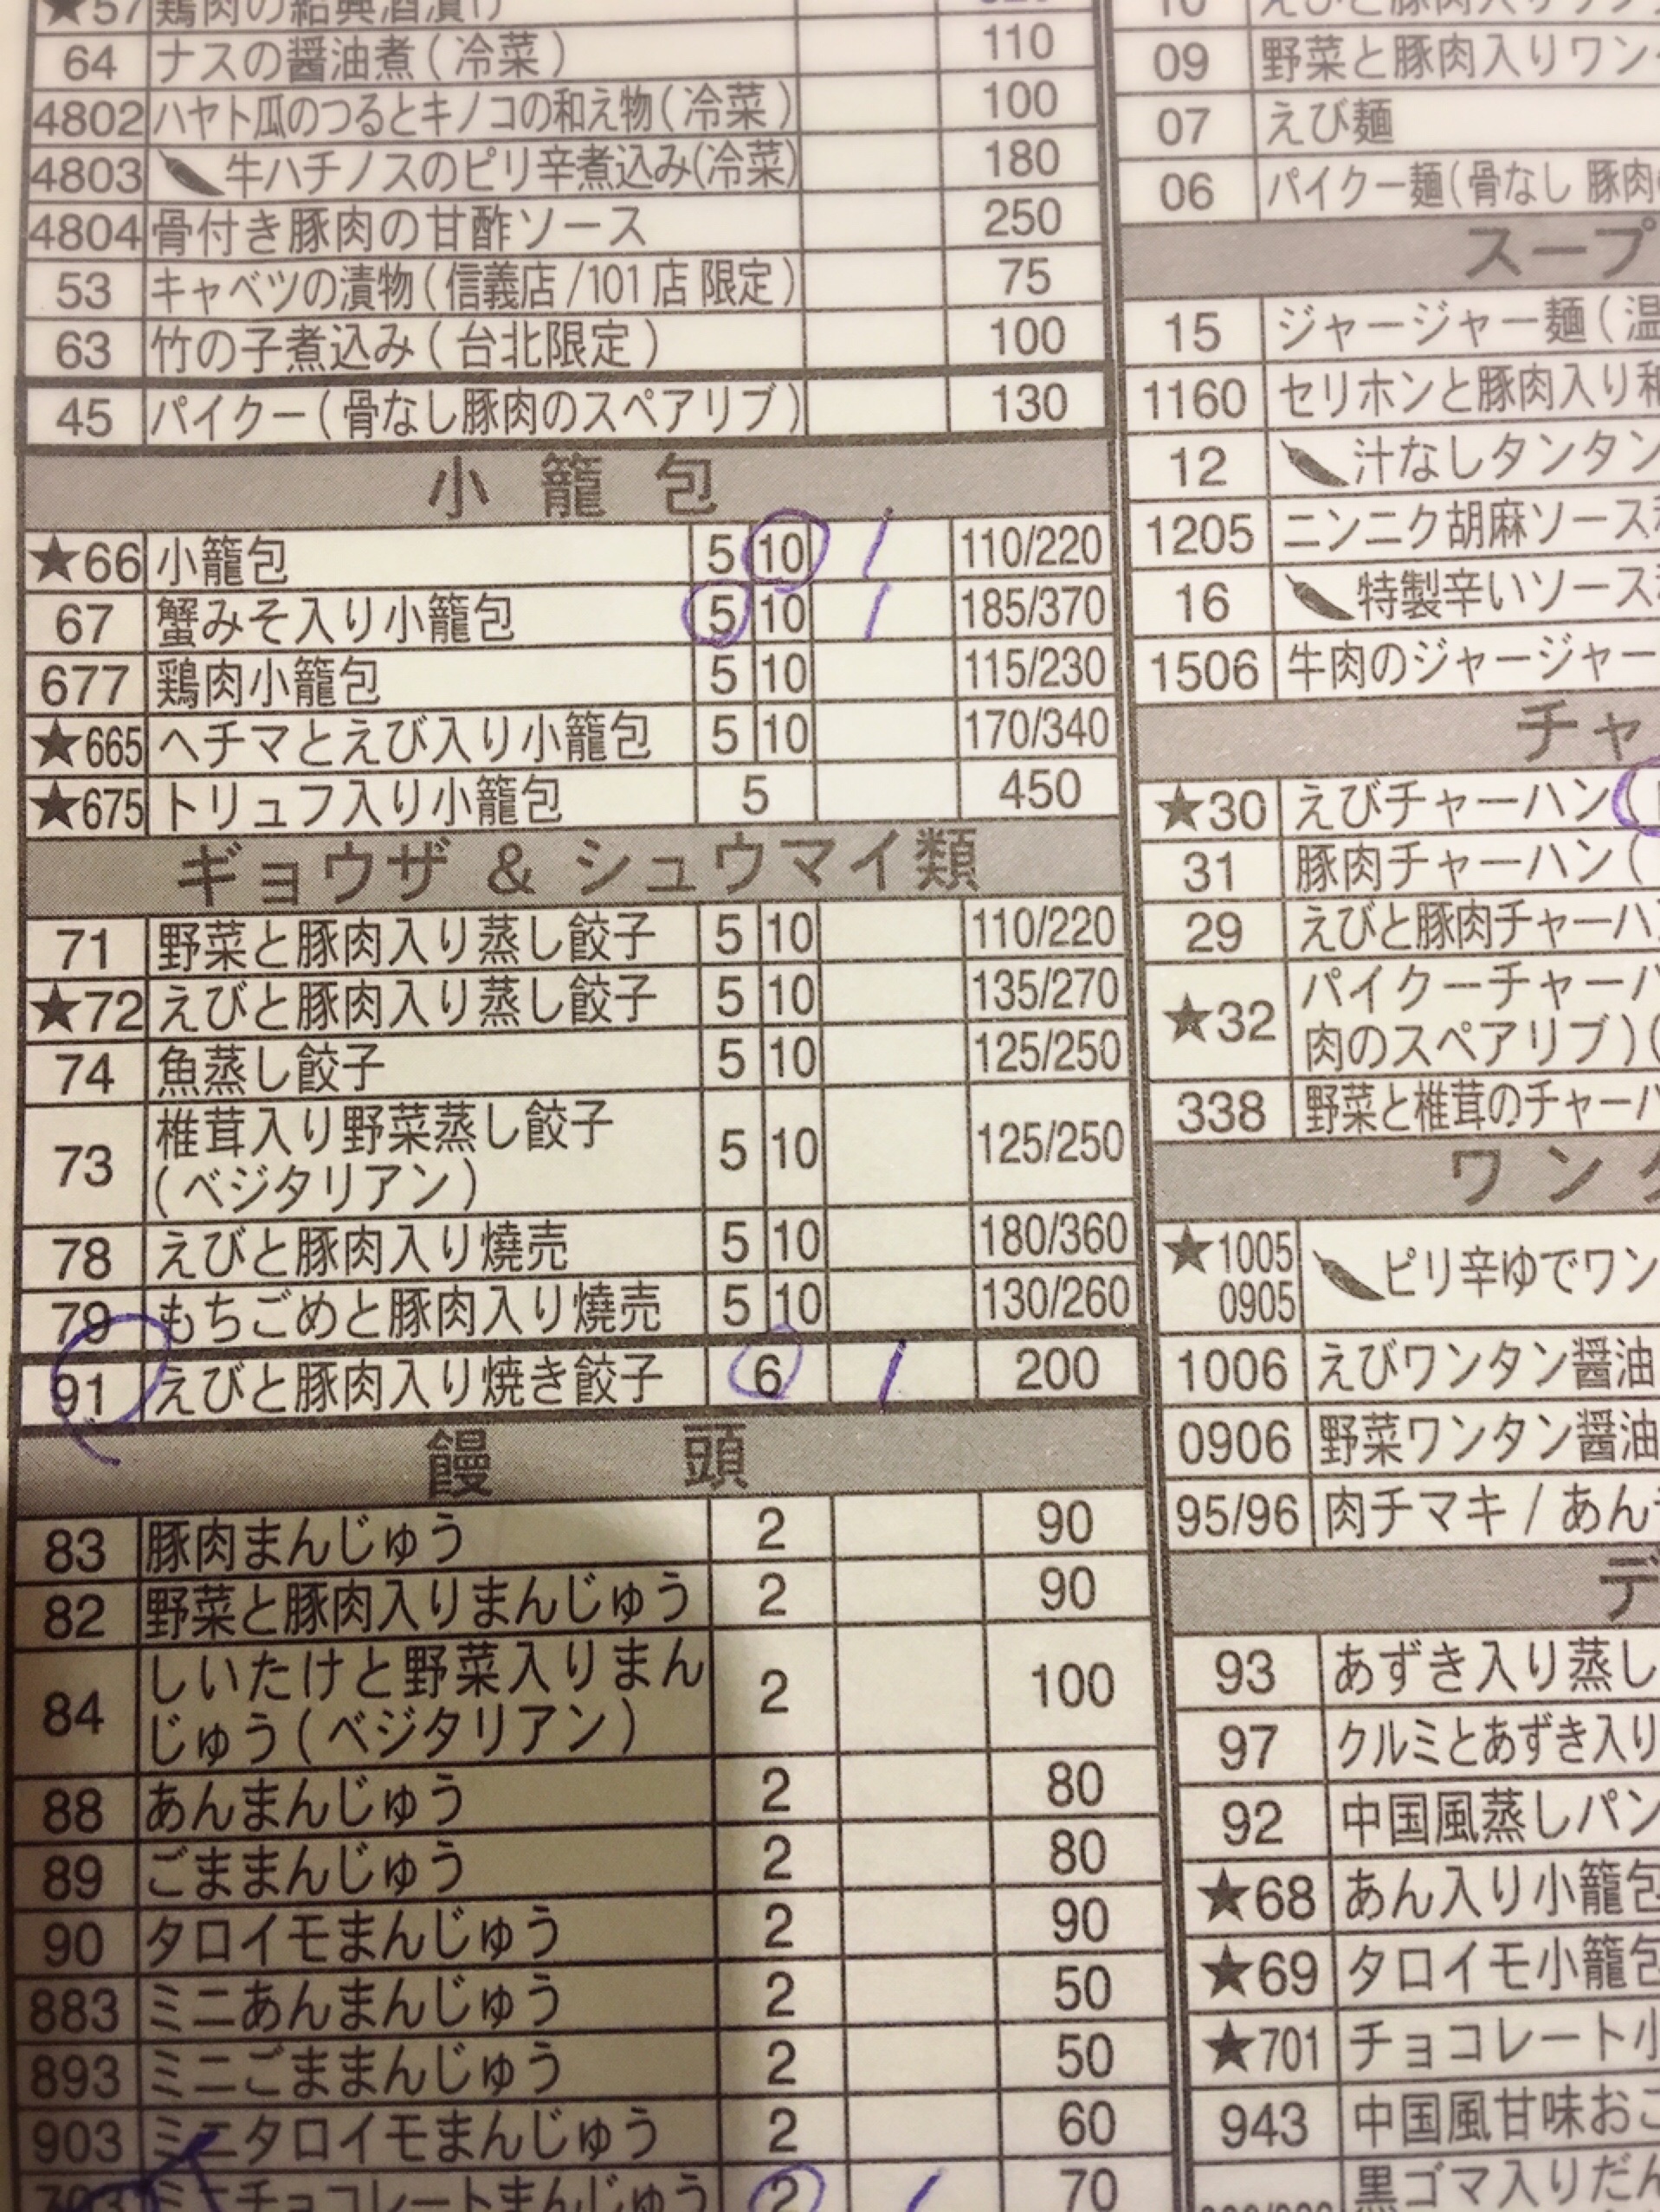 ★57 鶏肉の紹興酒漬け
64 ナスの醤油煮(冷菜) 110
4802 ハヤト瓜のつるとキノコの和え物(冷菜) 100
4803 牛ハチノスのピリ辛煮込み(冷菜) 180
4804 骨付き豚肉の甘酢ソース 250
53 キャベツの漬物(信義店/101店 限定) 75
63 竹の子煮込み(台北限定) 100
45 パイクー(骨なし豚肉のスペアリブ) 130
小籠包
★66 小籠包 5 10 1 110/220
67 蟹みそ入り小籠包 5 10 1 185/370
677 鶏肉小籠包 5 10 115/230
★665 ヘチマとえび入り小籠包 5 10 170/340
★675 トリュフ入り小籠包 5 450
ギョウザ & シュウマイ類
71 野菜と豚肉入り蒸し餃子 5 10 110/220
★72 えびと豚肉入り蒸し餃子 5 10 135/270
74 魚蒸し餃子 5 10 125/250
73 椎茸入り野菜蒸し餃子
(ベジタリアン) 5 10 125/250
78 えびと豚肉入り燒売 5 10 180/360
79 もちごめと豚肉入り燒売 5 10 130/260
91 えびと豚肉入り焼き餃子 6 1 200
饅頭
83 豚肉まんじゅう 2 90
82 野菜と豚肉入りまんじゅう 2 90
84 しいたけと野菜入りまん
じゅう(ベジタリアン) 2 100
88 あんまんじゅう 2 80
89 ごままんじゅう 2 80
90 タロイモまんじゅう 2 90
883 ミニあんまんじゅう 2 50
893 ミニごままんじゅう 2 50
903 ミニタロイモまんじゅう 2 60
703 ミニチョコレートまんじゅう 2 1 70
09 野菜と豚肉入りワン
07 えび麺
06 パイクー麺(骨なし 豚肉
スープ
15 ジャージャー麺(温
1160 セリホンと豚肉入り和
12 汁なしタンタン
1205 ニンニク胡麻ソース
16 特製辛いソース
1506 牛肉のジャージャー
チャ
★30 えびチャーハン(
31 豚肉チャーハン(
29 えびと豚肉チャーハ
★32 パイクーチャーハ
肉のスペアリブ)(
338 野菜と椎茸のチャーハ
ワン
★1005
0905 ピリ辛ゆでワン
1006 えびワンタン醤油
0906 野菜ワンタン醤油
95/96 肉チマキ/あん
デ
93 あずき入り蒸し
97 クルミとあずき入り
92 中国風蒸しパン
★68 あん入り小籠包
★69 タロイモ小籠包
★701 チョコレート小
943 中国風甘味おこ
黒ゴマ入りだん